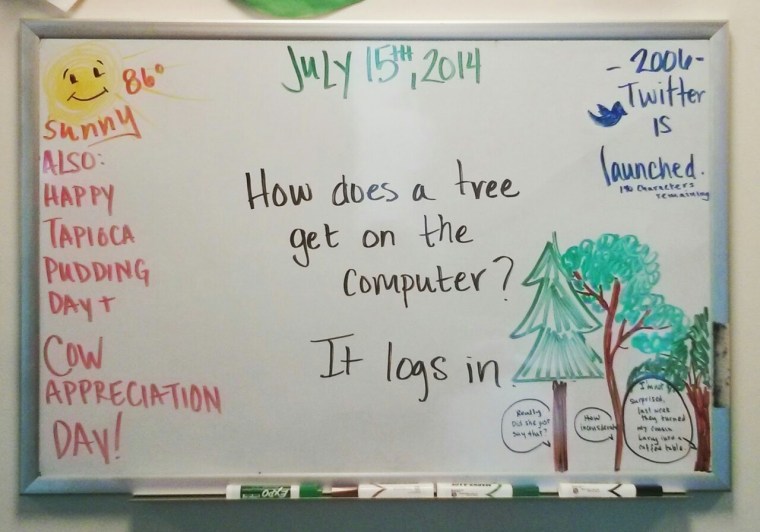 86°
sunny
ALSO:
HAPPY
TAPIOCA
PUDDING
DAY +
COW
APPRECIATION
DAY!
JULY 15TH, 2014
-2006-
Twitter
IS
launched.
130 characters
remaining
How does a tree
get on the
computer?
It logs in.
Really
Did she just
say that?
How
inconsiderate
I'm not
surprised,
last week
they turned
my cousin
Larry into a
coffee table.
EXPO